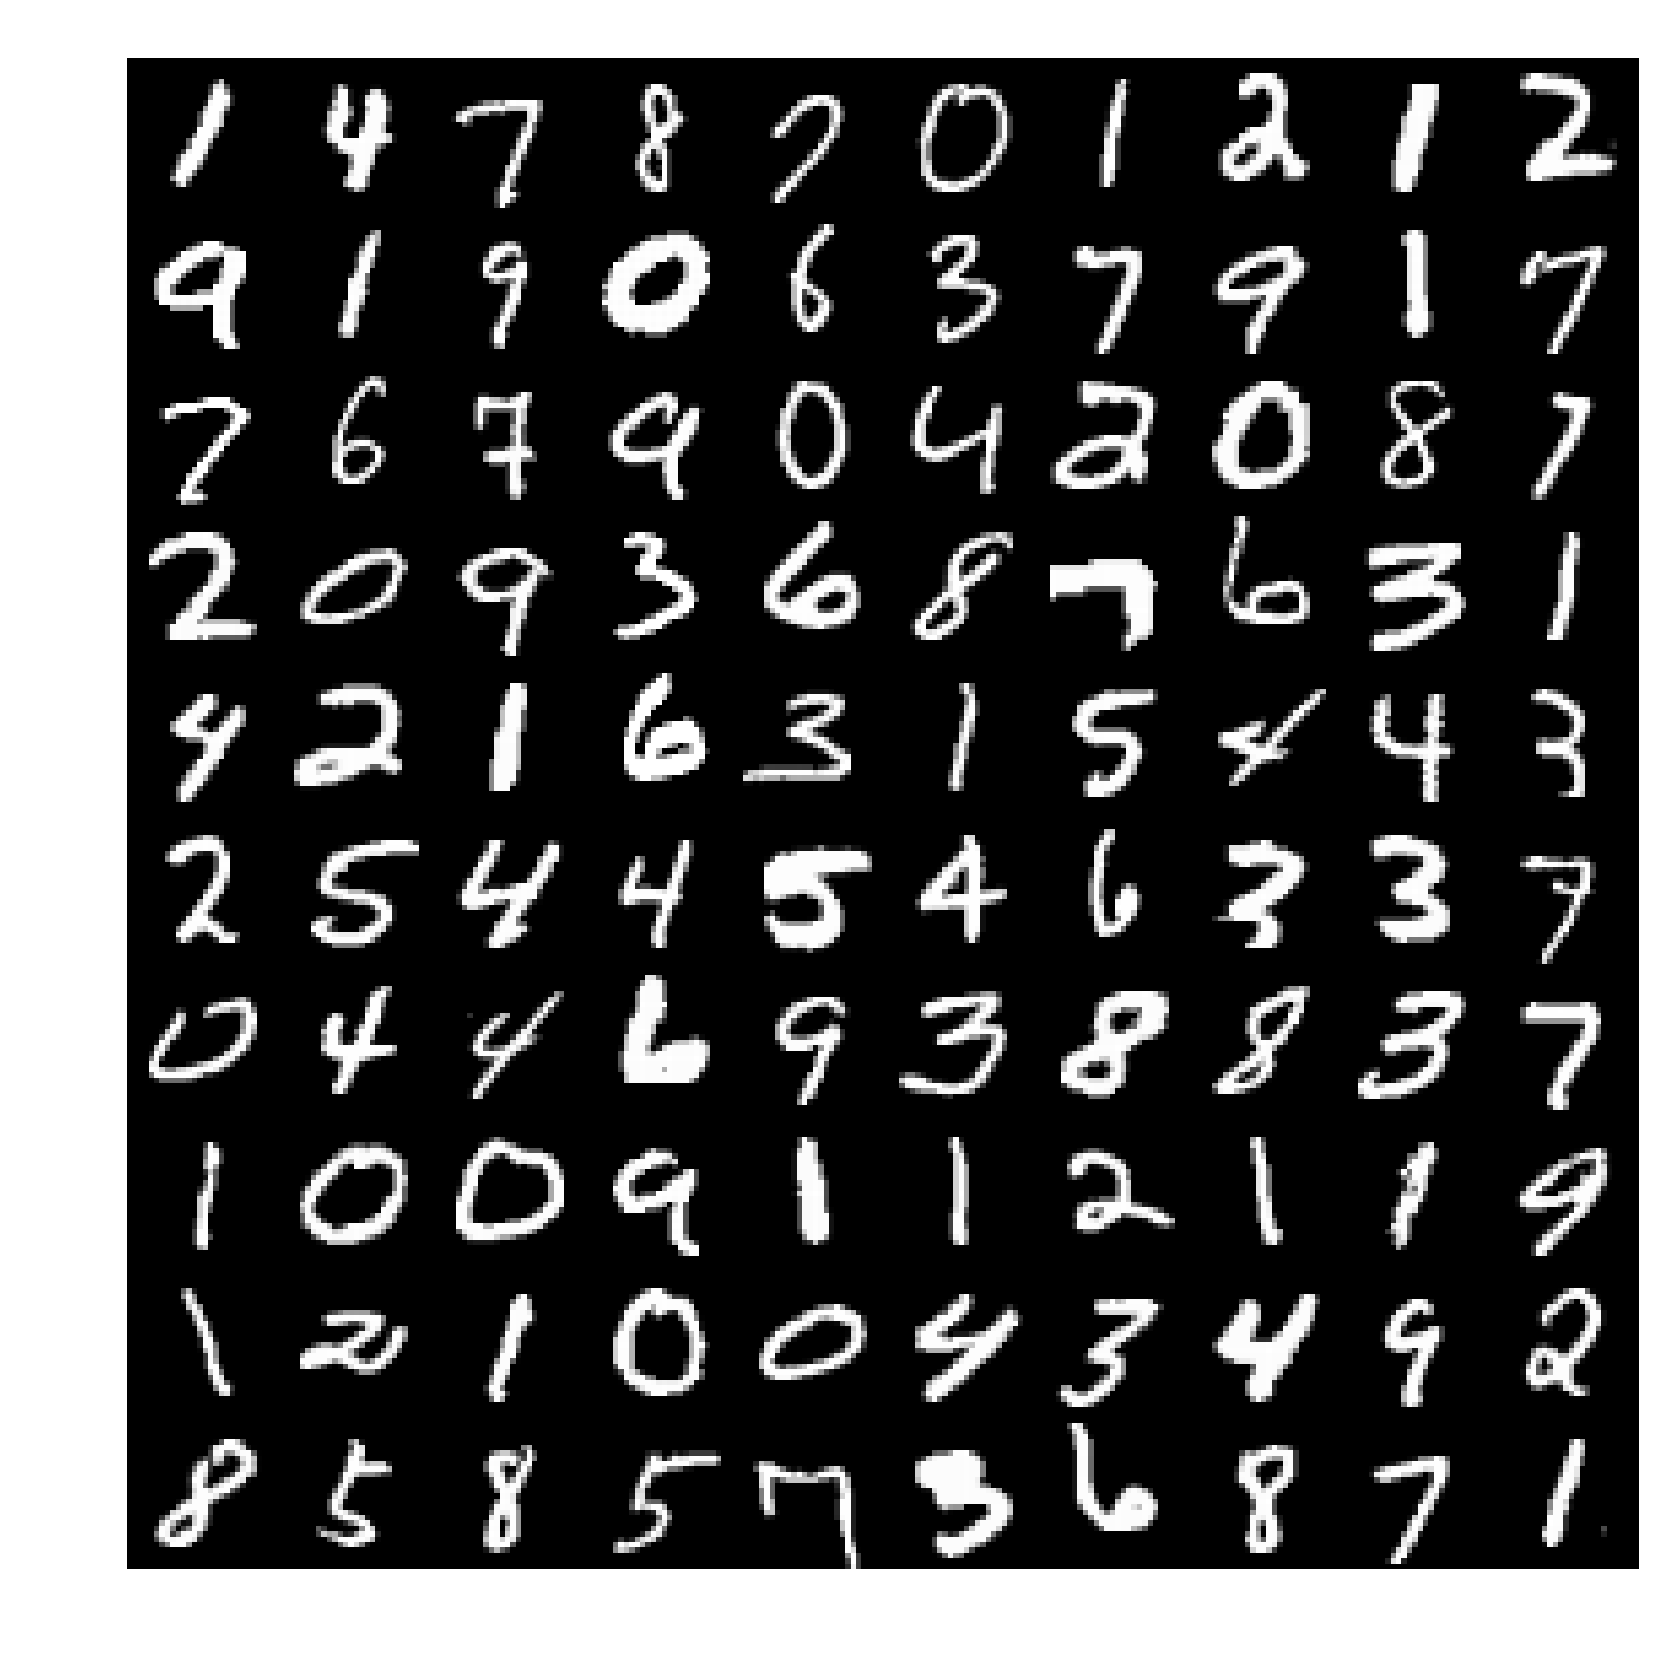 1 4 7 8 7 0 1 2 1 2
9 1 9 0 6 3 7 9 1 7
7 6 7 9 0 4 2 0 8 7
2 0 9 3 6 8 7 6 3 1
4 2 1 6 3 1 5 4 4 3
2 5 4 4 5 4 6 3 3 7
0 4 4 6 9 3 8 8 3 7
1 0 0 9 1 1 2 1 1 9
1 2 1 0 0 4 3 4 9 2
8 5 8 5 7 3 6 8 7 1